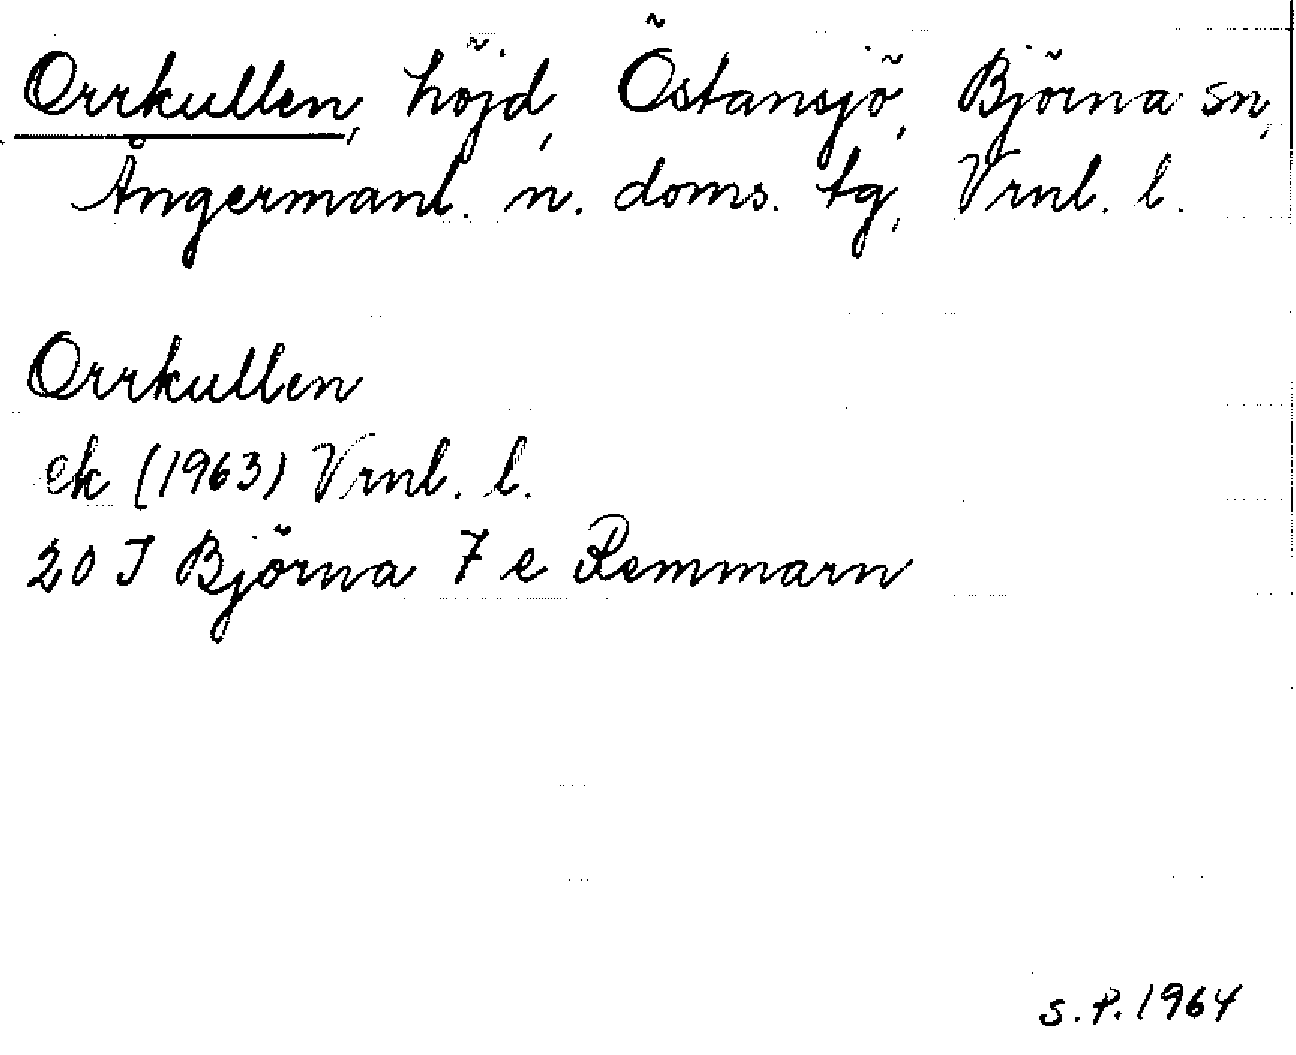 Orrkullen, höjd, Östansjö, Björna sn,
Ångermanl. n. doms. tg, Vrnl. l.
Orrkullen
ek (1963) Vrnl. l.
20 J Björna 7 e Remmarn
S.P. 1964